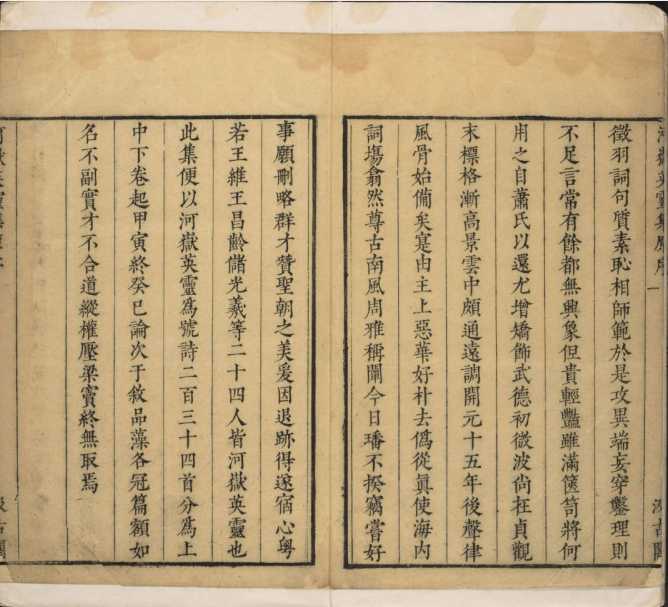 徵羽詞句質素恥相師範於是攻異端妄穿鑿理則
不足言常有餘都無興象但貴輕豔雖滿篋笥將何
用之自蕭氏以還尤增矯飾武德初微波尚在貞觀
末標格漸高景雲中頗通遠調開元十五年後聲律
風骨始備矣寔由主上惡華好朴去僞從眞使海内
詞塲翕然尊古南風周雅稱闡今日璠不揆竊嘗好
事願刪略群才贊聖朝之美爰因退跡得遂宿心粵
若王維王昌齡儲光羲等二十四人皆河嶽英靈也
此集便以河嶽英靈爲號詩二百三十四首分爲上
中下卷起甲寅終癸巳論次于敘品藻各冠篇額如
名不副實才不合道縱權壓梁竇終無取焉